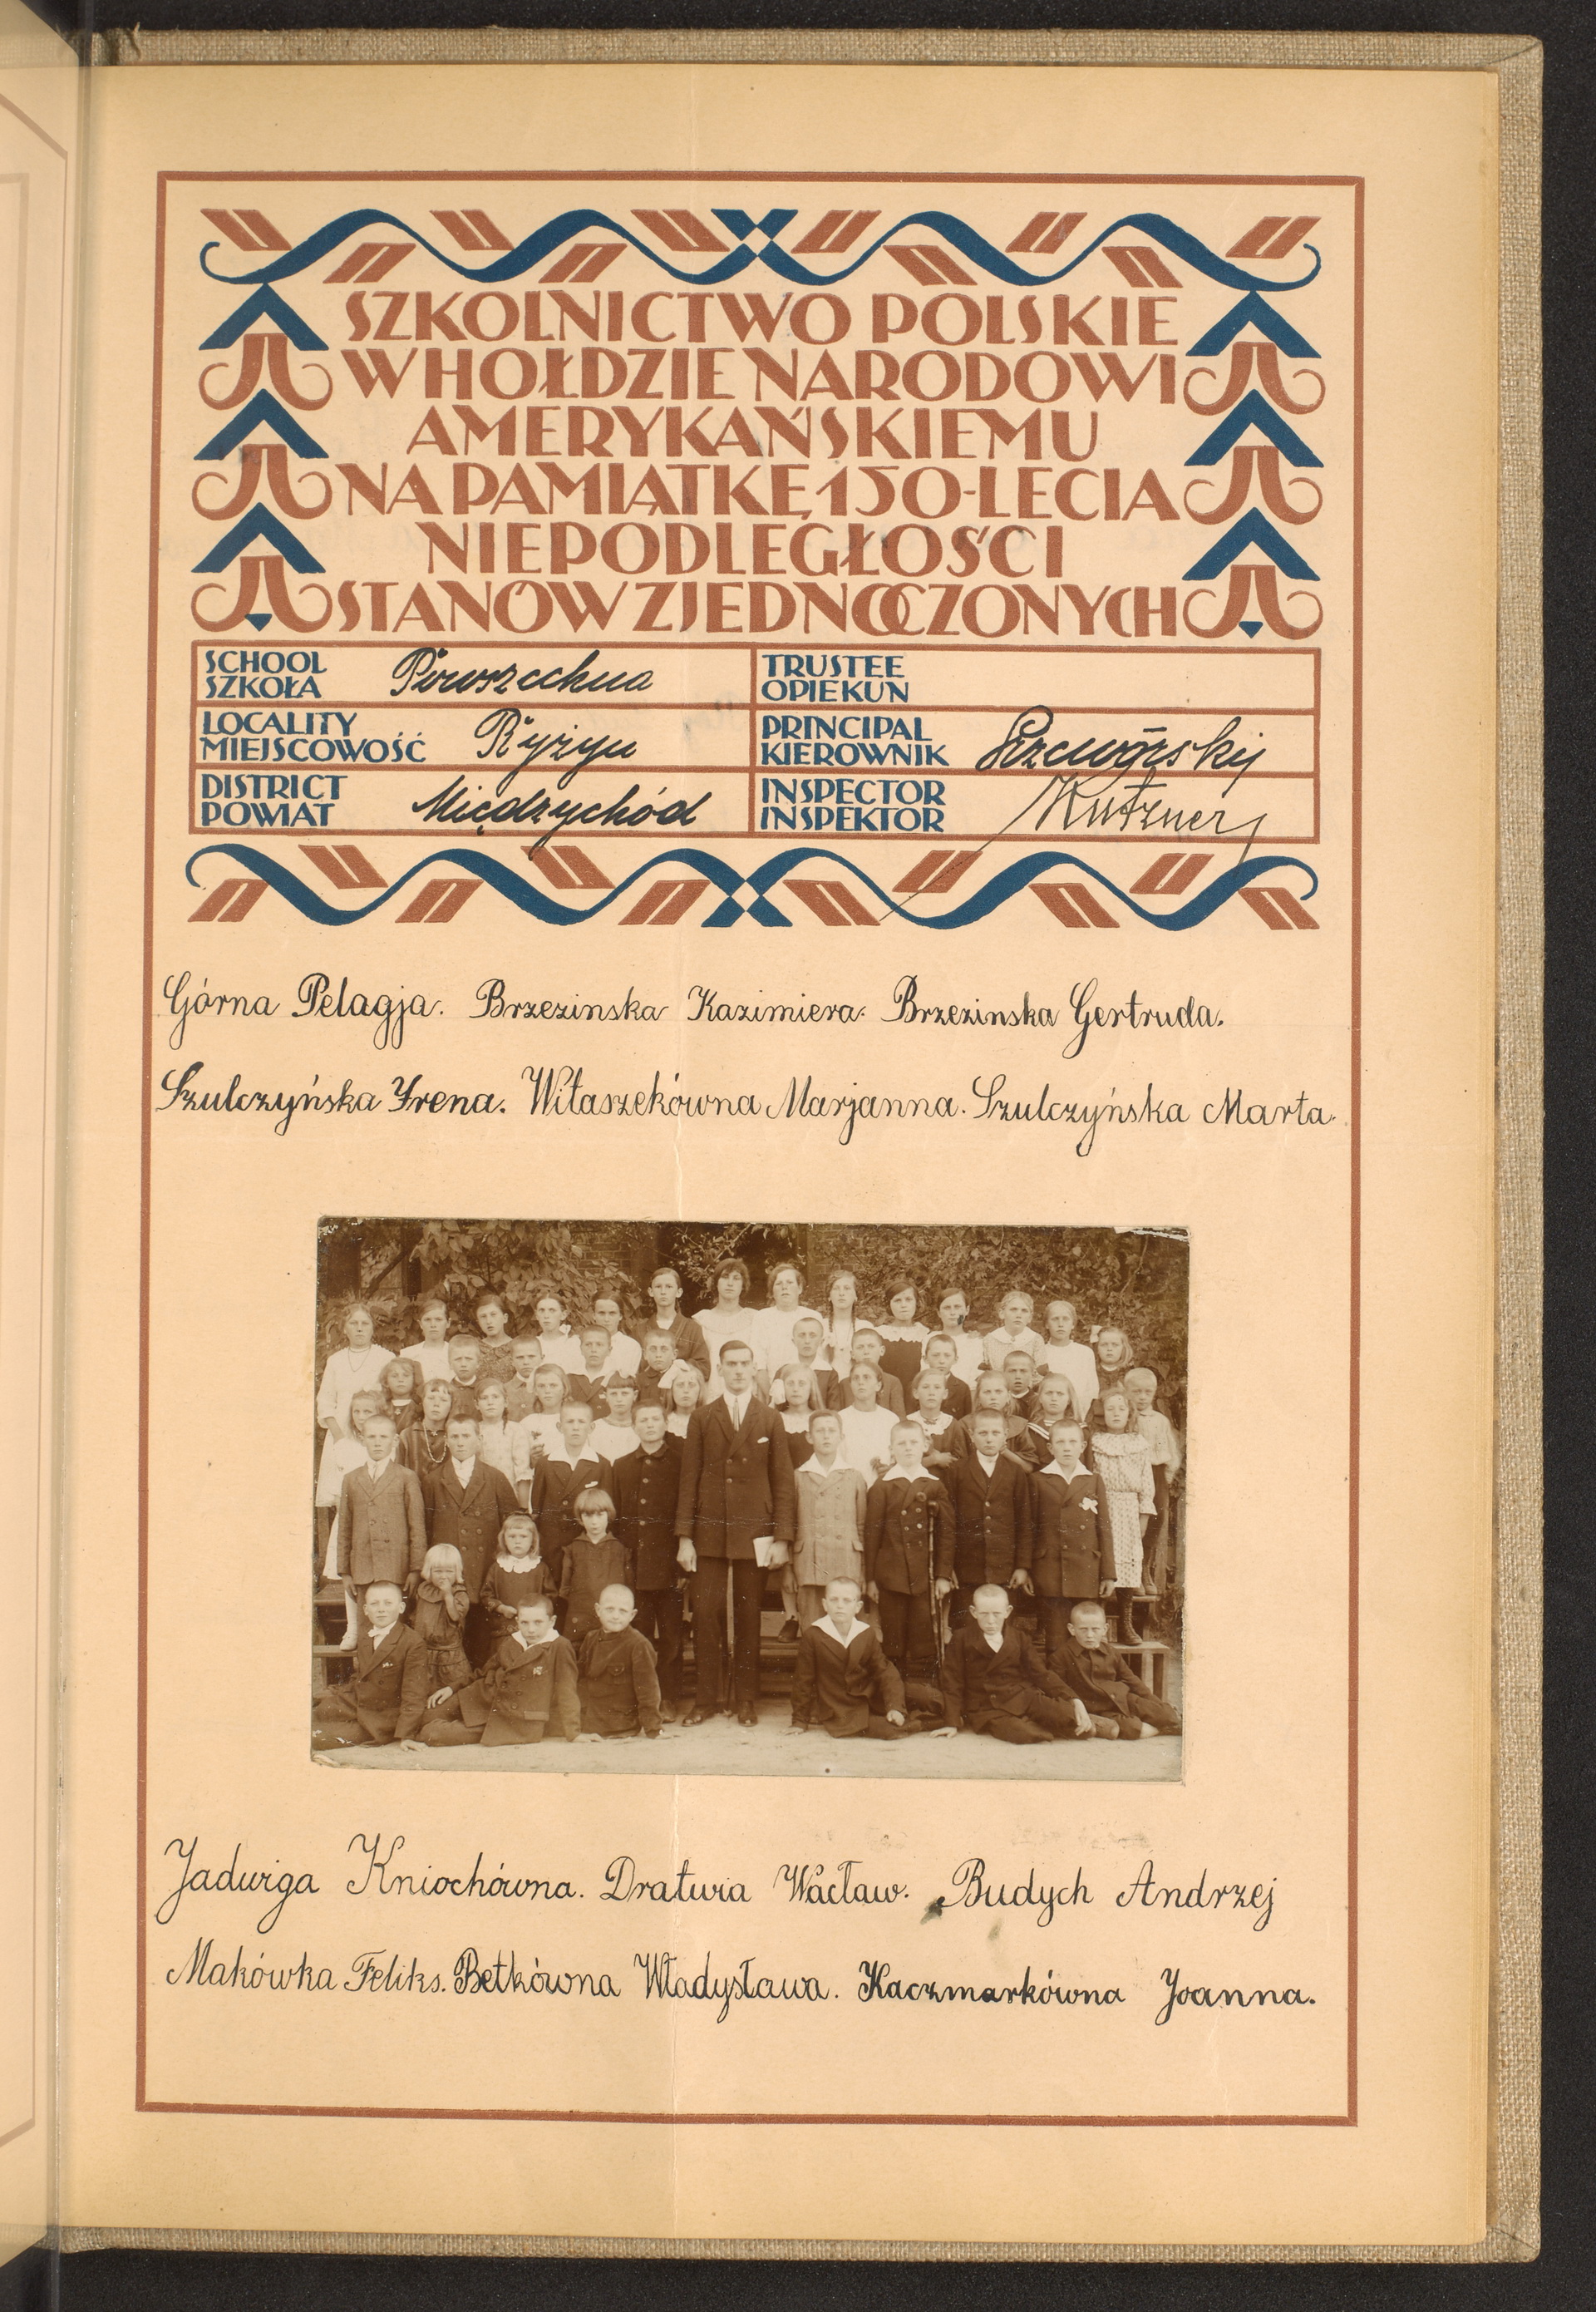 SZKOLNICTWO POLSKIE
W HOŁDZIE NARODOWI
AMERYKAŃSKIEMU
NA PAMIĄTKĘ 150-LECIA
NIEPODLEGŁOŚCI
STANÓW ZJEDNOCZONYCH
SCHOOL
SZKOŁA Powszechna
TRUSTEE
OPIEKUN
LOCALITY
MIEJSCOWOŚĆ Ryżyn
PRINCIPAL
KIEROWNIK
DISTRICT
POWIAT Międzychód
INSPECTOR
INSPEKTOR Kutzner
Górna Pelagja. Brzezinska Kazimiera. Brzezinska Gertruda.
Szulczyńska Yrena. Witaszekówna Marjanna. Szulczyńska Marta.
Jadwiga Kniochówna. Dratwia Wacław. Budych Andrzej
Makówka Feliks. Betkówna Władysława. Kaczmarkówna Joanna.